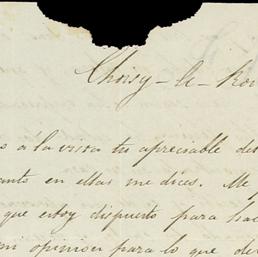 Choisy-le-Roi
á la vista tu apreciable de
anto en ellas me dices. Me
que estoy dispuesto para hac
mi opinion para lo que de